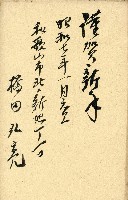 謹賀新年
昭和七年一月元旦
和歌山市北ノ新地一丁目
橋田弘亮